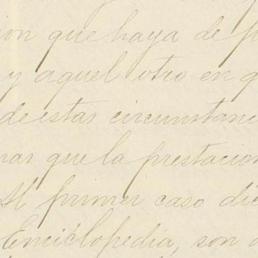 ion que haya de p
y aquel otro en q
de estas circunstanci
nar que la prestacion
Al primer caso di
Enciclopedia, son